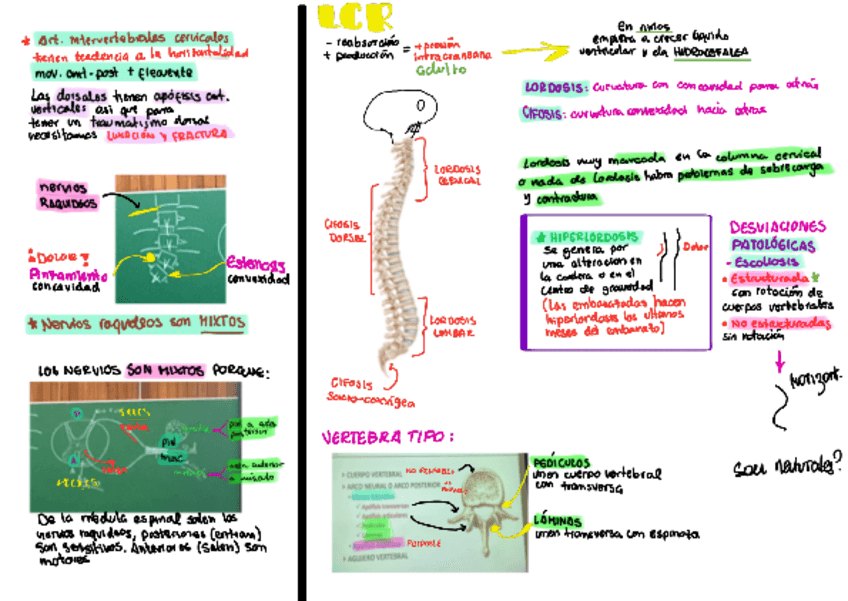 * Art. Intervertebrales cervicales
tienen tendencia a la horizontalidad
mov. ant-post + flexente
Las dorsales tienen apófisis art.
verticales asi que para
tener un traumatismo dorsal
necesitamos LUXACIÓN Y FRACTURA
nervios
RAQUIDEOS
DOLOR
Pinzamiento
concavidad
Estenosis
convexidad
* Nervios raquídeos son MIXTOS
LOS NERVIOS SON MIXTOS PORQUE:
piel
musc
De la médula espinal salen los
nervios raquídeos, posteriores (entran)
son sensitivos. Anteriores (salen) son
motores
LCR
- reabsorción
+ producción
= + presión
intracraneana
adulto
En niños
empieza a crecer líquido
ventricular y da HIDROCEFALEA
LORDOSIS: curvatura con concavidad para atrás
CIFOSIS: curvatura convexidad hacia atras
Lordosis muy marcada en la columna cervical
o nada de lordosis habra problemas de sobrecarga
y contractura
LORDOSIS
CERVICAL
CIFOSIS
DORSAL
LORDOSIS
LUMBAR
CIFOSIS
Sacro-coccígea
* HIPERLORDOSIS
Se genera por
una alteracion en
la cadera o en el
centro de gravedad
(Las embarazadas hacen
hiperlordosis los ultimos
meses del embarazo)
Dolor
DESVIACIONES
PATOLÓGICAS
- Escoliosis
• Estructurada *
con rotación de
cuerpos vertebrales
• No estructuradas
sin rotación
Horizont.
Son naturales?
VERTEBRA TIPO:
CUERPO VERTEBRAL
ARCO NEURAL O ARCO POSTERIOR
Apófisis transversas
Apófisis articulares
AGUJERO VERTEBRAL
PEDÍCULOS
unen cuerpo vertebral
con transversa
LÁMINAS
unen transversa con espinosa